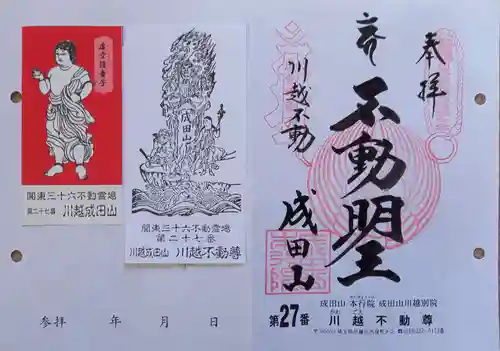 虚空護童子
関東三十六不動霊場
第二十七番 川越成田山
成田山
関東三十六不動霊場
第二十七番
川越成田山 川越不動尊
参拝 年 月 日
奉拝
不動明王
川越不動
成田山
成田山 本行院 成田山川越別院
第27番 川越不動尊